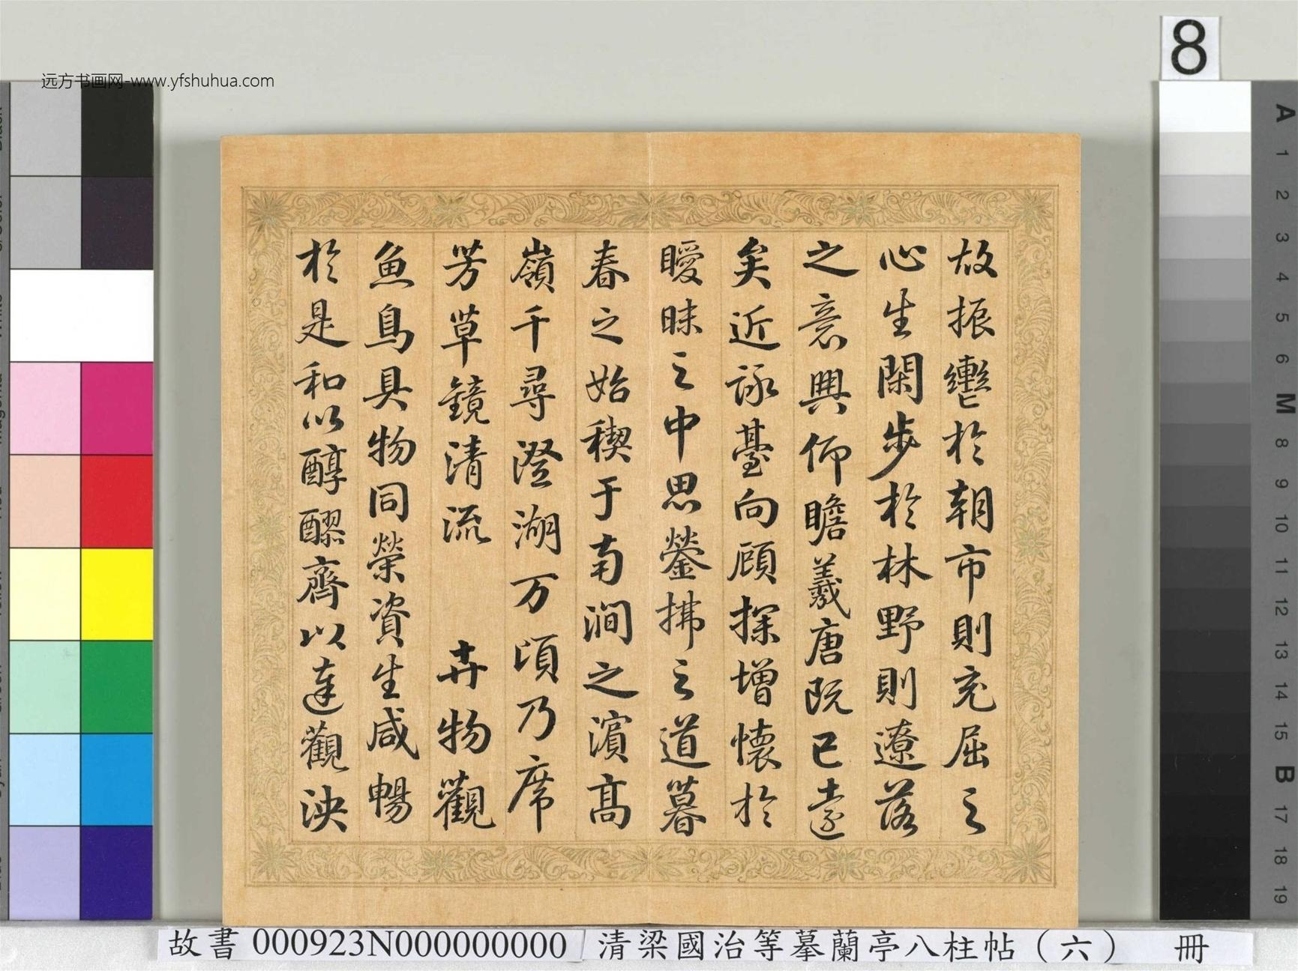 远方书画网-www.yfshuhua.com
8
故振轡於朝市則充屈之
心生閑步於林野則遼落
之意興仰瞻羲唐既已遠
矣近詠臺向顧探增懷於
曖昧之中思瑩拂之道暮
春之始禊于南澗之濱高
嶺千尋澄湖万頃乃席
芳草鏡清流 卉物觀
魚鳥具物同榮資生咸暢
於是和以醇醪齊以達觀泱
A
1
2
3
4
5
6
M
8
9
10
11
12
13
14
15
B
17
18
19
故書 000923N000000000 清梁國治等摹蘭亭八柱帖（六） 冊